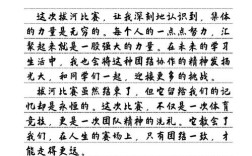 这次拔河比赛，让我深刻地认识到，集体
的力量是无穷的。每个人的一点点努力，汇
聚起来就是一股强大的力量。在未来的学习
生活中，我也会将这种团结协作的精神发扬
光大，和同学们一起，迎接更多的挑战。
拔河比赛虽然结束了，但它留给我们的记
忆却是永恒的。这次比赛，不仅是一次体育
竞技，更是一次团队精神的洗礼。它教会了
我们，在人生的赛场上，只有团结一致，才
能走得更远。